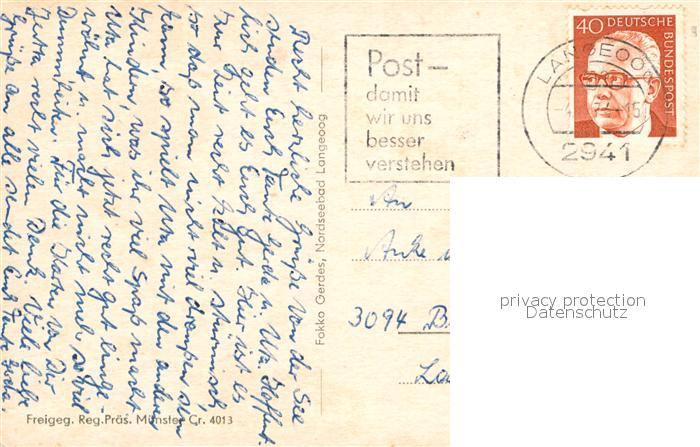 Recht herzliche Grüße von der See
senden Euch Tante Gerda u. Uta. Hoffent-
lich geht es Euch gut. Hier ist es
zur Zeit recht kalt u. stürmisch,
so daß man nicht viel draußen sein
kann. So spielt Uta mit den anderen
Kindern, was ihr viel Spaß macht.
Uta hat sich jetzt recht gut einge-
wöhnt u. macht nicht mehr so viel
Dummheiten. Für die Karten von Dir
recht vielen Dank. Viel liebe
Grüße an alle sendet Eure Tante Gerda.
Freigeg. Reg.Präs. Münster Cr. 4013
Fokko Gerdes, Nordseebad Langeoog
Post–
damit
wir uns
besser
verstehen
LANGEOOG
2941
40 DEUTSCHE
BUNDESPOST
An
Anke
3094 B
privacy protection
Datenschutz